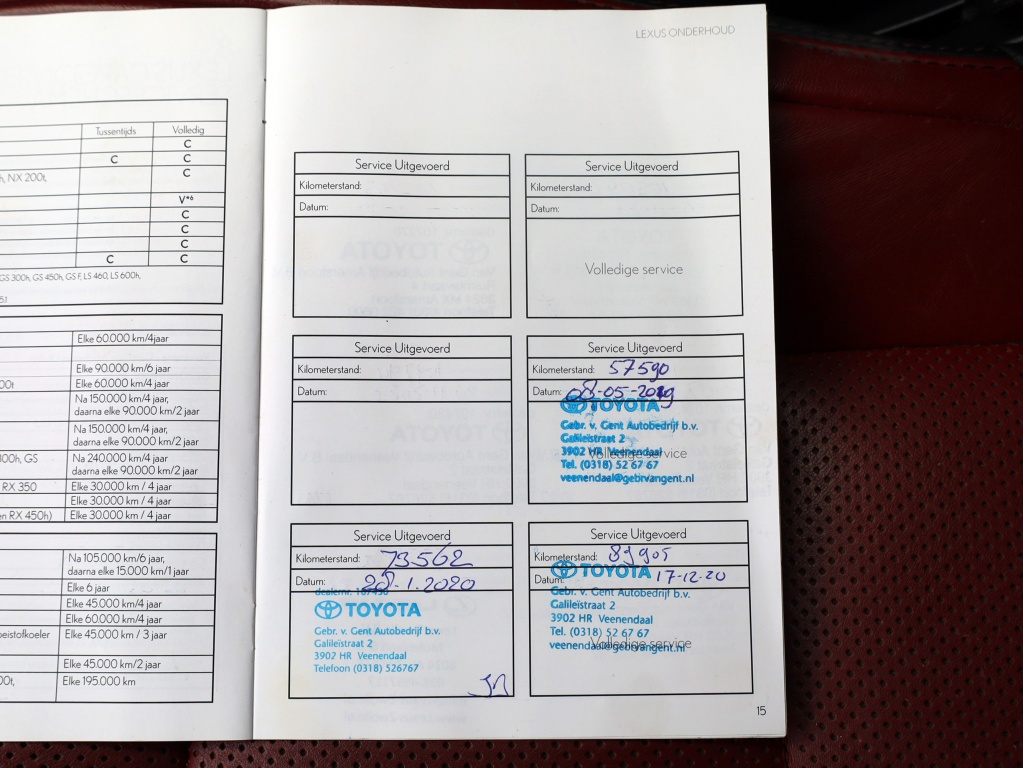 Tussentijds Volledig
C
C C
h, NX 200t, C
V*6
C
C
C
C C
GS 300h, GS 450h, GS F, LS 460, LS 600h,
51
Elke 60.000 km/4 jaar
Elke 90.000 km/6 jaar
00t Elke 60.000 km/4 jaar
Na 150.000 km/4 jaar,
daarna elke 90.000 km/2 jaar
Na 150.000 km/4 jaar,
daarna elke 90.000 km/2 jaar
300h, GS Na 240.000 km/4 jaar
daarna elke 90.000 km/2 jaar
RX 350 Elke 30.000 km / 4 jaar
Elke 30.000 km / 4 jaar
en RX 450h) Elke 30.000 km / 4 jaar
Na 105.000 km/6 jaar,
daarna elke 15.000 km/1 jaar
Elke 6 jaar
Elke 45.000 km/4 jaar
Elke 60.000 km/4 jaar
oeistofkoeler Elke 45.000 km / 3 jaar
Elke 45.000 km/2 jaar
00t, Elke 195.000 km
LEXUS ONDERHOUD
Service Uitgevoerd
Kilometerstand:
Datum:
Service Uitgevoerd
Kilometerstand:
Datum:
Volledige service
Service Uitgevoerd
Kilometerstand:
Datum:
Service Uitgevoerd
Kilometerstand: 57590
Datum: 08-05-2019
TOYOTA
Gebr. v. Gent Autobedrijf b.v.
Galileïstraat 2
3902 HR Veenendaal
Volledige service
Tel. (0318) 52 67 67
veenendaal@gebrvangent.nl
Service Uitgevoerd
Kilometerstand: 73562
Datum: 28-1-2020
dealernr.
TOYOTA
Gebr. v. Gent Autobedrijf b.v.
Galileïstraat 2
3902 HR Veenendaal
Telefoon (0318) 526767
Service Uitgevoerd
Kilometerstand: 89905
Datum: 17-12-20
TOYOTA
Gebr. v. Gent Autobedrijf b.v.
Galileïstraat 2
3902 HR Veenendaal
Tel. (0318) 52 67 67
Volledige service
veenendaal@gebrvangent.nl
15